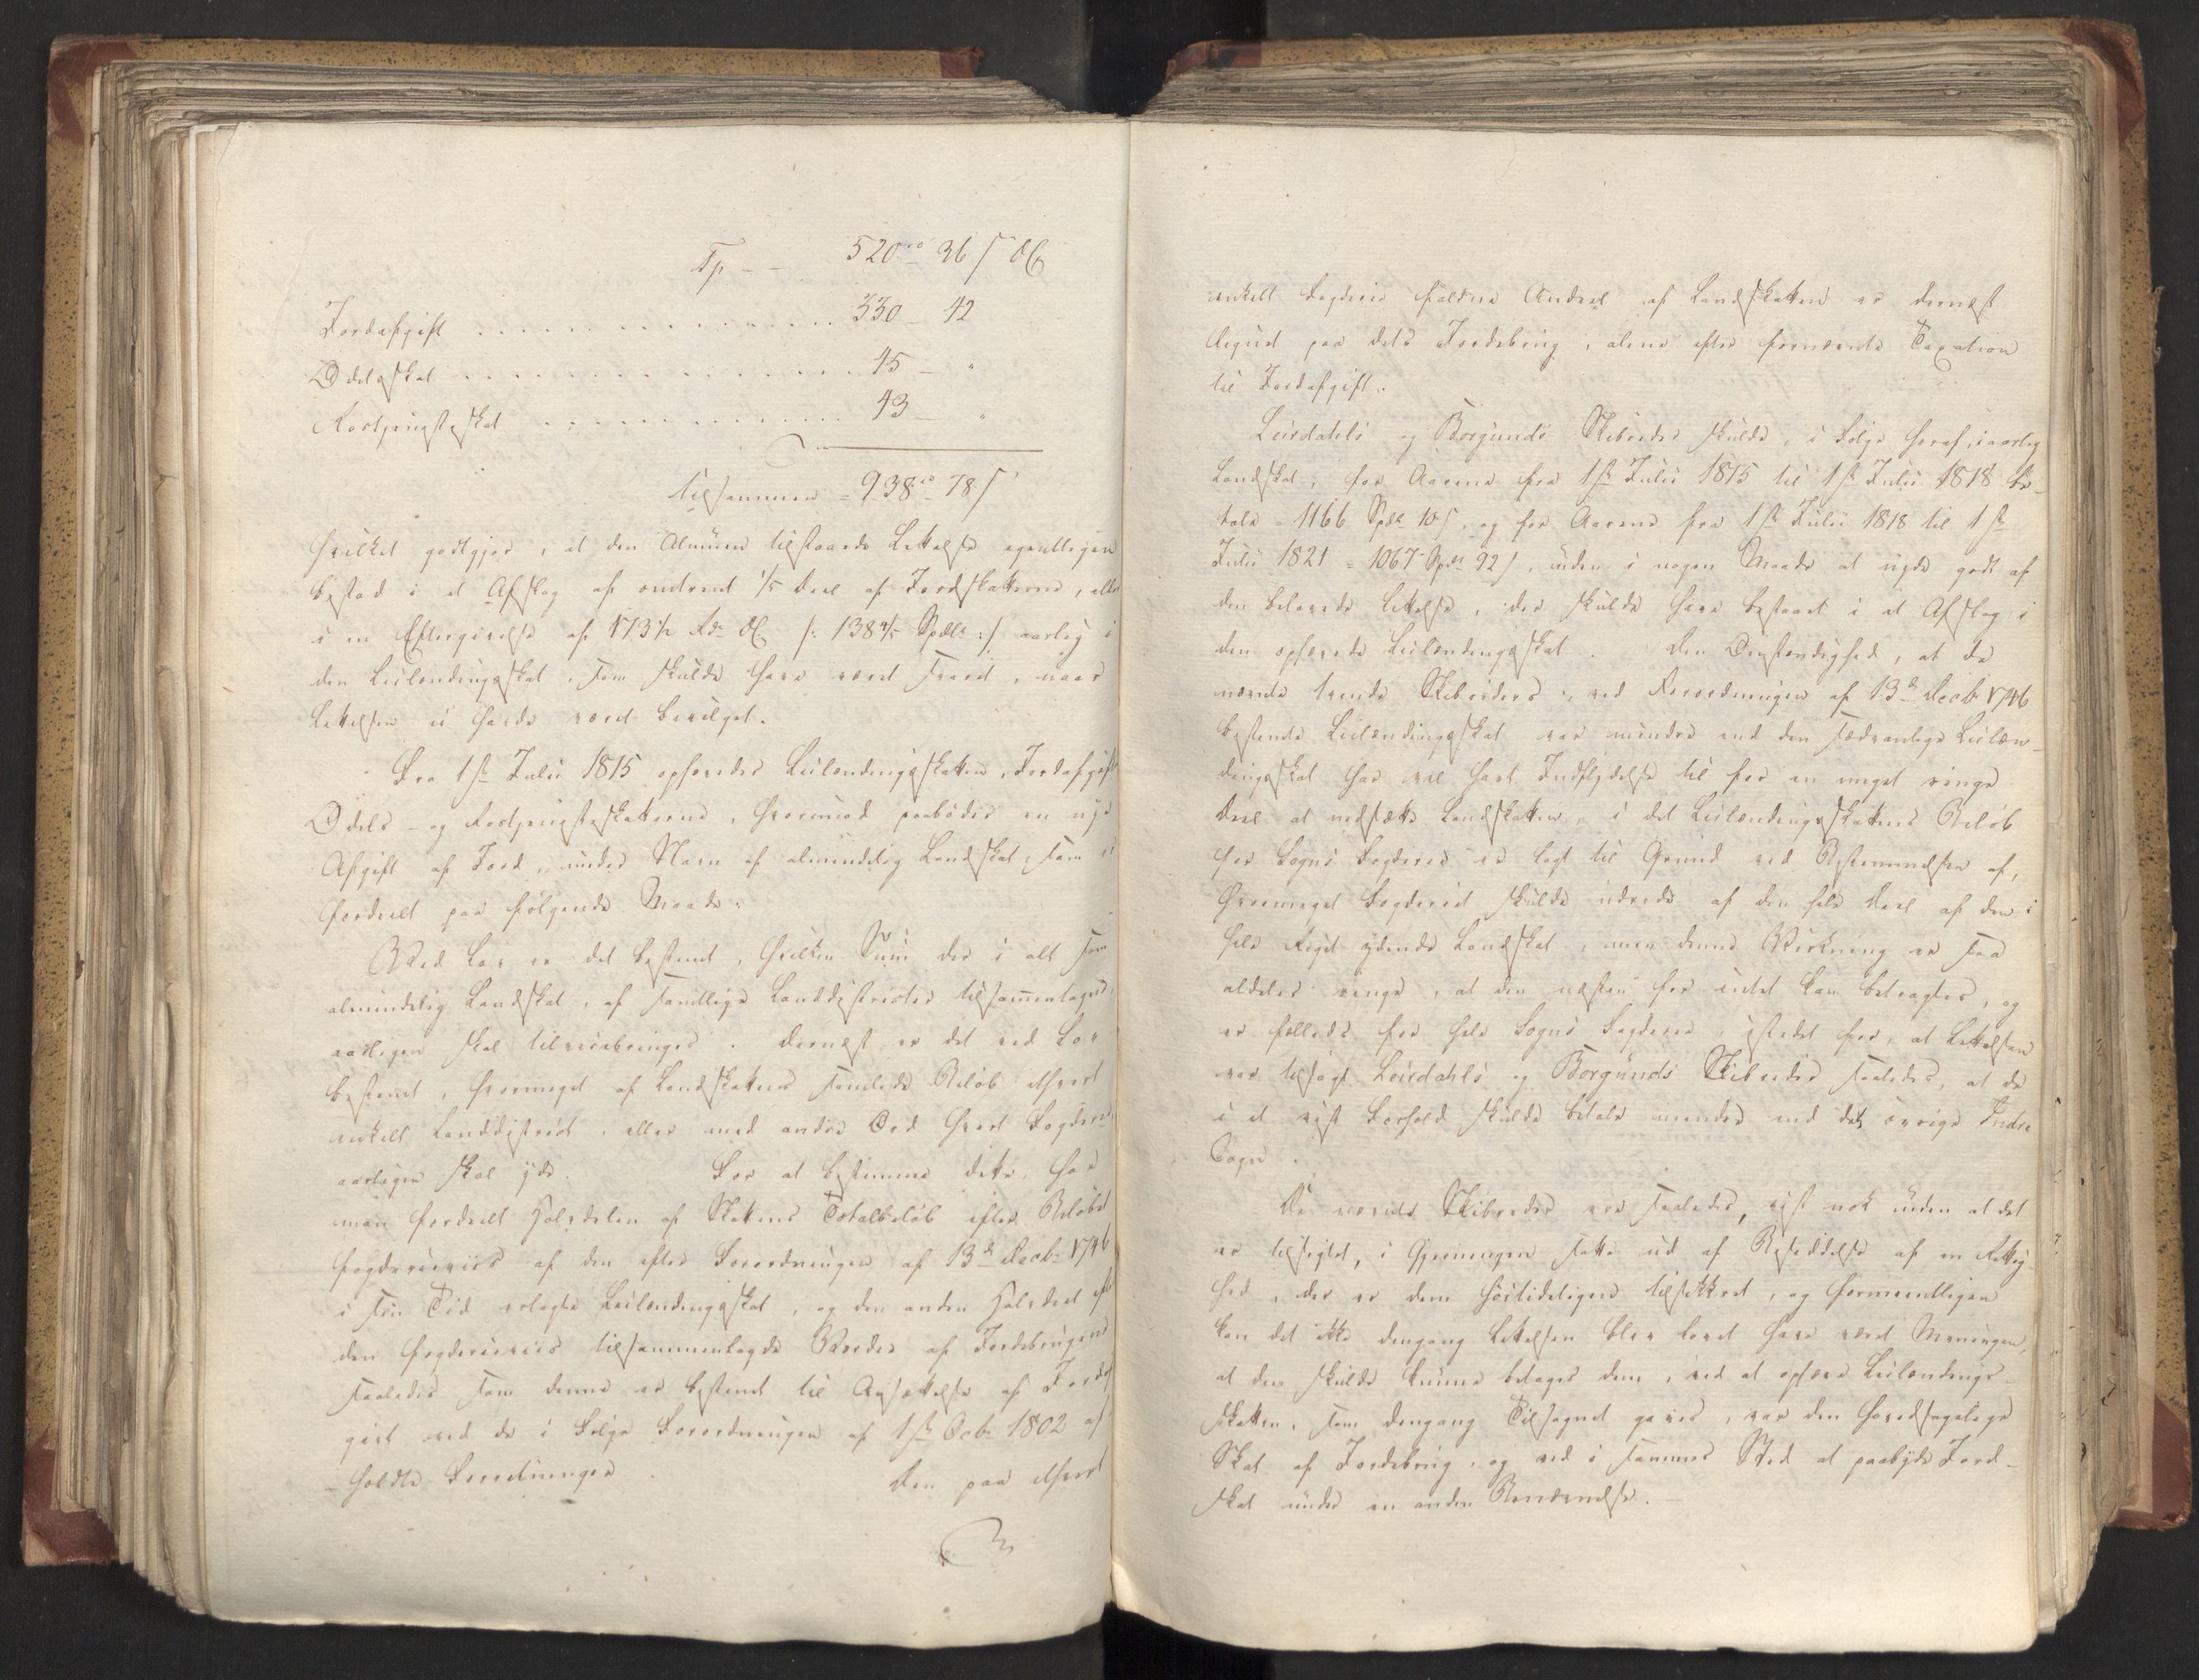 Tp - - 520 rd 36 s DC
Jordafgift . . . . . . . . . . . . . . . 330 - 42
Odelsskat . . . . . . . . . . . . . . . 45 - "
Rostjenesteskat . . . . . . . . . . . . 43 - "
tilsammen = 938 rd 78 s
hvilket godtgjør, at den Almuen tilstaaede Lettelse egentligen
bestod i et Afslag af omtrent 1/5 Deel af Jordskatterne, eller
i en Eftergivelse af 173½ Rdr DC /: 138 4/5 Spdlr :/ aarlig i
den Leilendingsskat, som skulde have været svaret, naar
Lettelsen ei havde været bevilget.
Fra 1ste Julii 1815 ophævedes Leilendingsskatten, Jordafgift
Odels- og Rostjenesteskatterne, hvorimod paabødes en nye
Afgift af Jord, under Navn af almindelig Landskat, som er
fordeelt paa følgende Maade:
Ved Lov er det bestemt, hvilken Sum der i alt som
almindelig Landskat, af samtlige Landdistricter tilsammentagne,
aarligen skal tilveiebringes. Dernæst er det ved Lov
bestemt, hvormeget af Landskattens samlede Beløb ethvert
enkelt Landdistrict, eller med andre Ord hvert Fogderie
aarligen skal yde. For at bestemme dette, har
man fordeelt Halvdelen af Skattens Totalbeløb efter Beløbet
fogderieviis af den efter Forordningen af 13de Decbr 1746
i sin Tid erlagte Leilendingsskat, og den anden Halvdeel efter
den fogderieviis tilsammenlagde Værdie af Jordebrugene
saaledes som denne er bestemt til Ansættelse af Jordaf
gift ved de i Følge Forordningen af 1ste Octbr 1802 af-
holdte Forretninger. Den paa ethvert
enkelt Fogderie faldne Andeel af Landskatten er dernæst
lignet paa dets Jordebrug, alene efter fornævnte Taxation
til Jordafgift.
Leirdahls og Borgunds Skibreder skulde, i Følge heraf, i aarlig
Landskat, for Aarene fra 1ste Julii 1815 til 1ste Julii 1818 be-
tale = 1166 Spdlr 10 s, og for Aarene fra 1ste Julii 1818 til 1ste
Julii 1821 = 1067 Spdlr 92 s, uden i nogen Maade at nyde godt af
den belovede Lettelse, der skulde have bestaaet i et Afslag i
den ophævede Leilendingsskat. Den Omstændighed, at de
nævnte tvende Skibreders, ved Forordningen af 13de Decbr 1746
bestemte Leilendingsskat var mindre end den sædvanlige Leilen-
dingsskat har vel havt Indflydelse til for en meget ringe
Deel at nedsætte Landskatten, i det Leilendingsskattens Beløb
for Sogns Fogderie er lagt til Grund ved Bestemmelsen af,
hvormeget Fogderiet skulde udrede af den hele Deel af den i
hele Riget ydende Landskat, men denne Virkning er saa
aldeles ringe, at den næsten for intet kan betragtes, og
er fælleds for hele Sogns Fogderie istedet for, at Lettelsen
var tilsagt Leirdahls og Borgunds Skibreder saaledes, at de
i et vist Forhold skulde betale mindre end det øvrige Indre
Sogn.
De nævnte Skibreder ere saaledes, vist nok uden at det
er tilsigtet, i Gjerningen satte ud af Besiddelse af en Rettig-
hed, der er dem høitideligen tilsikkret, og formeentligen
kan det ikke dengang Lettelsen blev lovet have været Meningen,
at den skulde kunne betages dem, ved at ophæve Leilendings-
skatten, som dengang Tilsagnet gaves, var den hovedsagelige
Skat af Jordebrug, og ved i sammes Sted at paabyde Jord-
skat under en anden Benævnelse.